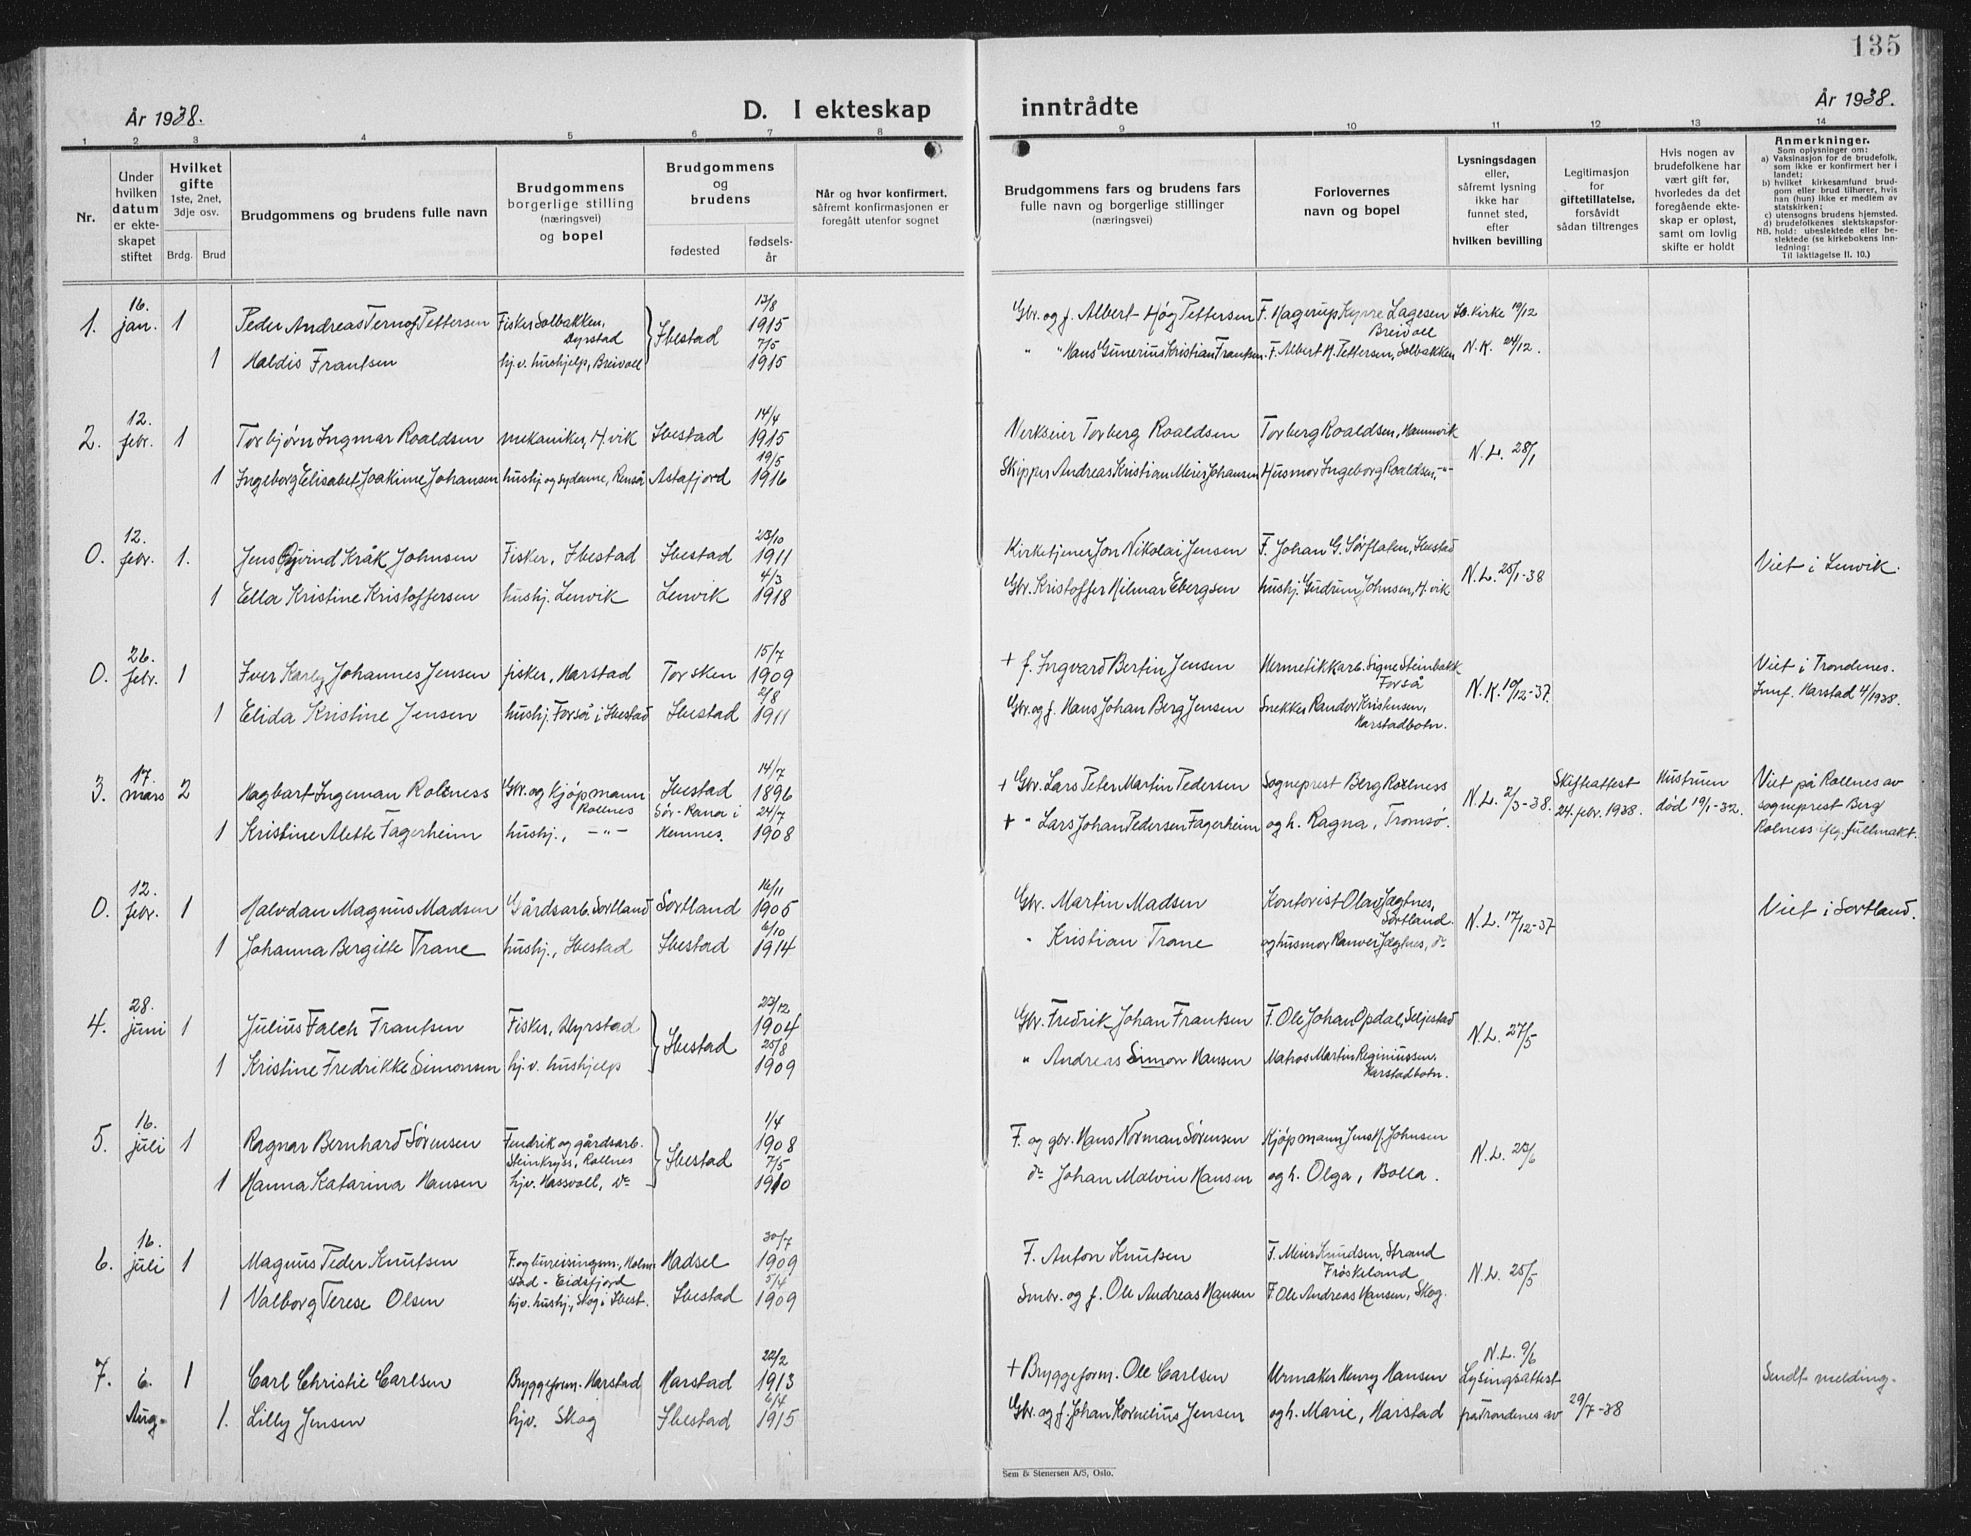 135
År 1938.
D. I ekteskap inntrådte
År 1938.
1 2 3 4 5 6 7 8 9 10 11 12 13 14
Nr.
Under hvilken datum er ekteskapet stiftet
Hvilket gifte
1ste, 2net, 3dje osv.
Brdg. Brud
Brudgommens og brudens fulle navn
Brudgommens borgerlige stilling (næringsvei) og bopel
Brudgommens og brudens
fødested
fødselsår
Når og hvor konfirmert, såfremt konfirmasjonen er foregått utenfor sognet
Brudgommens fars og brudens fars fulle navn og borgerlige stillinger (næringsvei)
Forlovernes navn og bopel
Lysningsdagen eller, såfremt lysning ikke har funnet sted, efter hvilken bevilling
Legitimasjon for giftetillatelse, forsåvidt sådan tiltrenges
Hvis nogen av brudefolkene har vært gift før, hvorledes da det foregående ekteskap er opløst, samt om lovlig skifte er holdt
Anmerkninger.
Som oplysninger om:
a) Vaksinasjon for de brudefolk, som ikke er konfirmert her i landet;
b) hvilket kirkesamfund brudgom eller brud tilhører, hvis han (hun) ikke er medlem av statskirken;
c) utensogns brudens hjemsted.
d) brudefolkenes slektskapsforhold: ubeslektede eller beslektede (se kirkebokens innledning:
NB. Til iakttagelse ll. 10.)
1. 16. jan. 1 Peder Andreas Ternof Pettersen Fisker Solbakken, Dyrstad Ibestad 13/8 1915 Gbr. og f. Albert Høg Pettersen F. Hagerup Kyrre Lagesen Breivoll Ib. kirke 19/12
1 Haldis Frantsen hj.v. hushjelp, Breivoll 7/5 1915 " " Hans Gunerius Kristian Frantsen. F. Albert H. Pettersen, Solbakken N.K. 24/12.
2. 12. febr. 1 Torbjørn Ingmar Roaldsen mekaniker, H.vik Ibestad 14/4 1915 Verkseier Torberg Roaldsen Torberg Roaldsen, Hamnvik N.L. 28/1
1 Ingeborg Elisabet Joakime Johansen hushj og sydame, Renså Astafjord 19/5 1916 Skipper Andreas Kristian Meier Johansen Husmor Ingeborg Roaldsen, -"-
0. 12. febr. 1. Jens Øyvind Kråk Johnsen Fisker, Ibestad Ibestad 23/10 1911 Kirketjener Jon Nikolai Jensen F. Johan G. Sørflaten, Ibestad N.L. 25/1-38 Viet i Lenvik.
1 Ella Kristine Kristoffersen hushj. Lenvik Lenvik 4/3 1918 Gbr. Kristoffer Hilmar Ebergsen hushj. Gudrun Johnsen, H.vik
0. 26. febr. 1 Iver Karly Johannes Jensen fisker, Harstad Torsken 15/7 1909 + f. Ingvard Bertin Jensen Hermetikkarb. Signe Steinbakk Forså N.K. 19/12-37. Viet i Trondenes.
1 Elida Kristine Jensen hushj. Forså i Ibestad Ibestad 2/8 1911 Gbr. og f. Hans Johan Berg Jensen Snekker Randor Kristensen, Harstadbotn. Innf. Harstad 4/1938.
3. 17. mars 2 Hagbart Ingeman Rolness Gbr. og kjøpmann Rollnes Ibestad 14/7 1896 + Gbr. Lars Peter Martin Pedersen Sogneprest Berg Rolness N.L. 2/3-38. Skifteattest 24. febr. 1938. Hustruen død 19/1-32. Viet på Rollnes av
1 Kristine Alette Fagerheim hushj., -"- Sør-Rana i Hemnes. 24/7 1908 + " Lars Johan Pedersen Fagerheim og h. Ragna, Tromsø. sogneprest Berg Rolness iflg. fullmakt.
0. 12. febr. 1 Halvdan Magnus Madsen Gårdsarb. Sortland Sortland 16/11 1905 Gbr. Martin Madsen Kontorist Olav Jægtnes, Sortland. N.L. 17/12-37 Viet i Sortland.
1 Johanna Bergitte Trane hushj., Ibestad Ibestad 6/10 1914 " Kristian Trane og husmor Ranvei Jægtnes, do
4. 28. juni 1 Julius Falch Frantsen Fisker, Dyrstad Ibestad 23/12 1904 Gbr. Fredrik Johan Frantsen F. Ole Johan Opdal, Seljestad N.L. 27/5
1 Kristine Fredrikke Simonsen hj.v. hushjelp 25/8 1909 " Andreas Simon Hansen Matros Martin Reginiussen, Harstadbotn.
5. 16. juli 1 Ragnar Bernhard Sørensen Fendrik og gårdsarb. Steinkryss, Rollnes Ibestad 1/4 1908 F. og gbr. Hans Norman Sørensen Kjøpmann Jens H. Johnsen N.L. 23/6
1 Hanna Katarina Hansen hjv. Hassvoll, do 7/5 1910 do Johan Malvin Hansen og h. Olga, Bolla.
6. 16. juli 1 Magnus Peder Knutsen F. og bureisingsm., Holmstad - Eidsfjord Hadsel 30/7 1909 F. Anton Knutsen F. Meier Knudsen, Strand Frøskeland N.L. 25/5
1 Valborg Terese Olsen hjv. hushj., Skog i Ibest. Ibestad 5/4 1909 Smbr. og f. Ole Andreas Hansen F. Ole Andreas Hansen, Skog.
7. 6. Aug. 1 Carl Christie Carlsen Bryggeform. Harstad Harstad 22/2 1913 + Bryggeform. Ole Carlsen Urmaker Henry Hansen N.L. 9/6 Lysingsattest Sendt melding.
1. Lilly Jensen hjv. Skog Ibestad 6/4 1915 Gbr. og f. Johan Kornelius Jensen og h. Marie, Harstad fra Trondenes av 29/7-38
Sem & Stenersen A/S, Oslo.